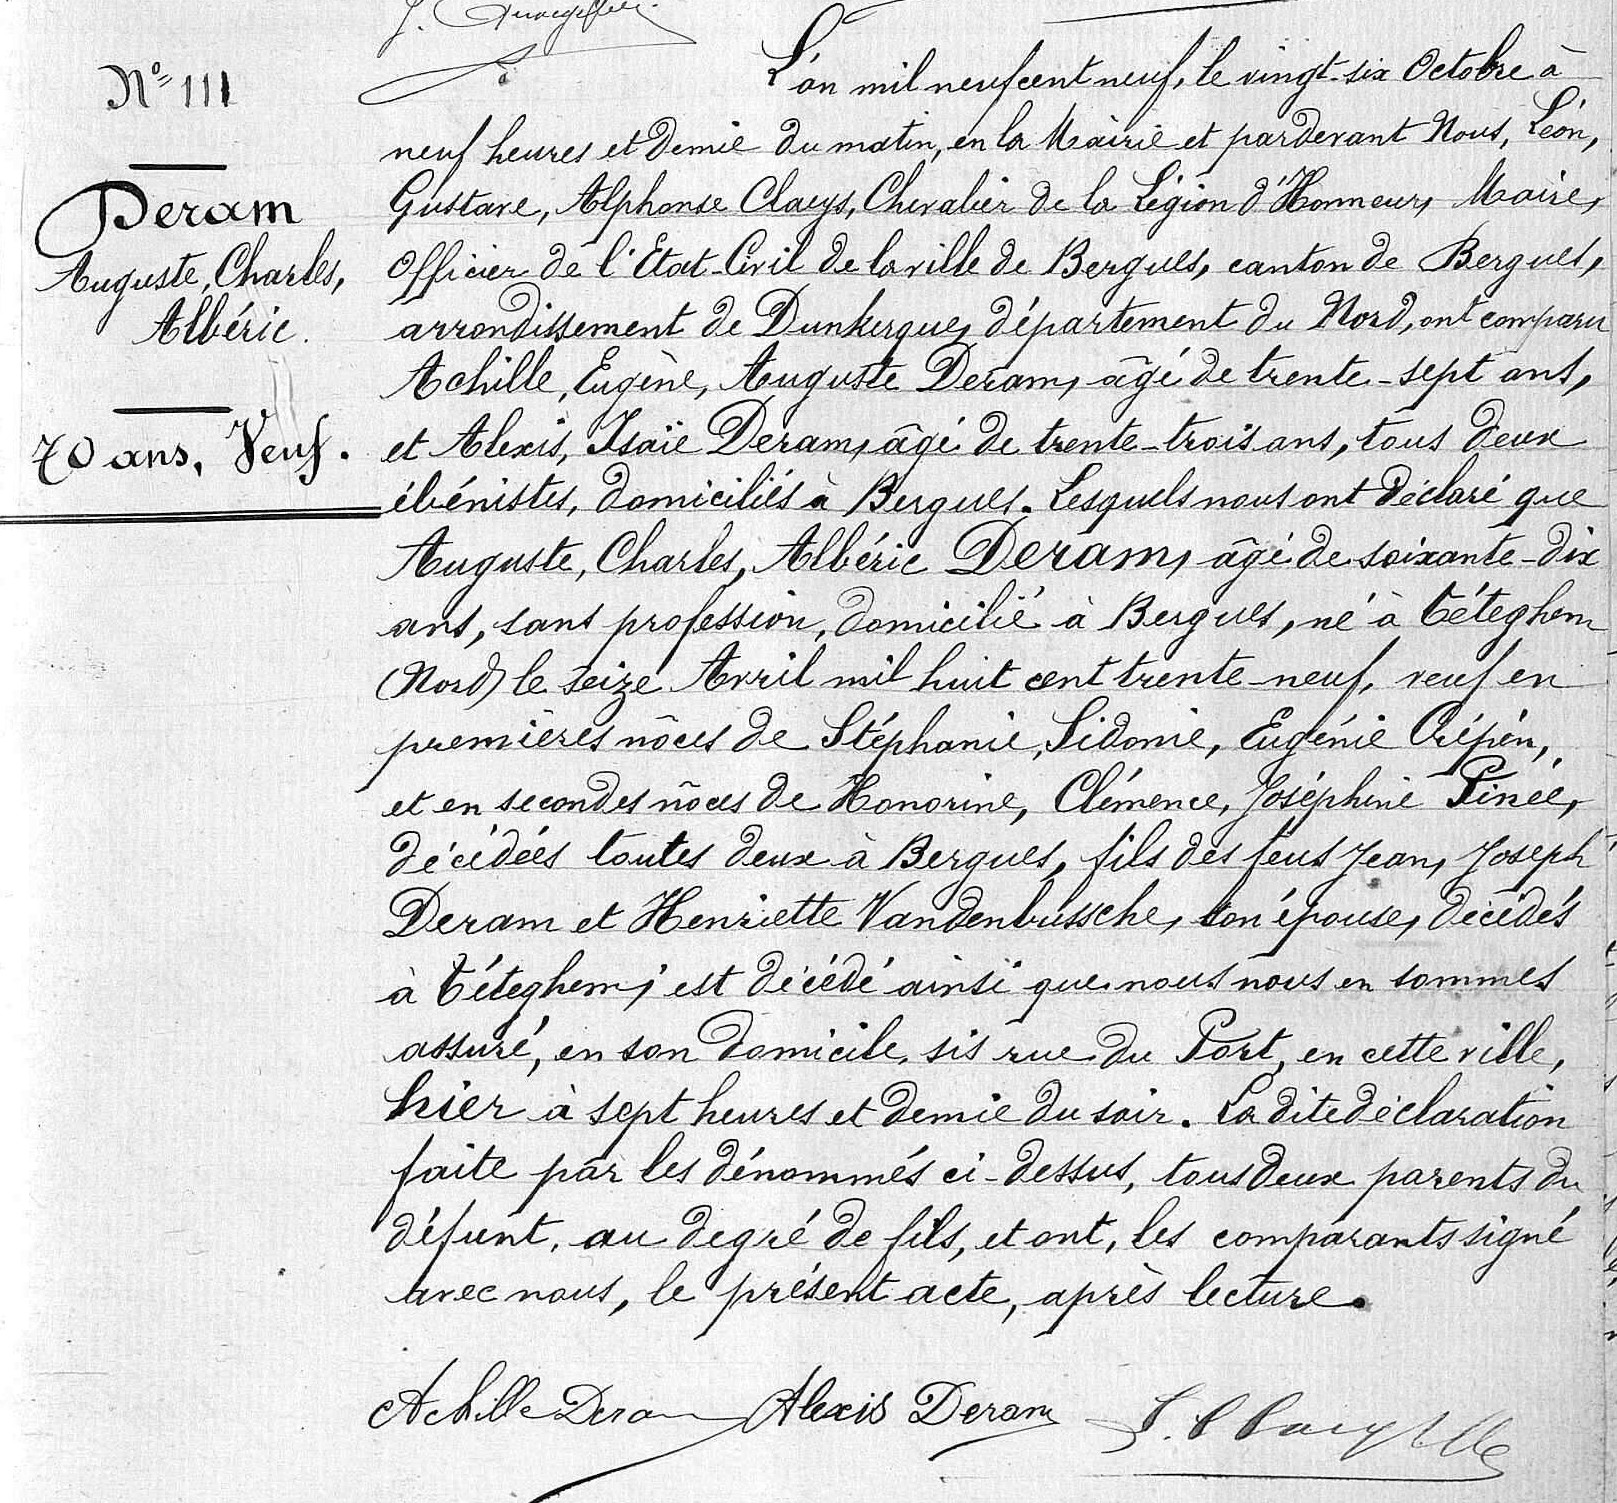 Nº 111
Deram
Auguste, Charles,
Albéric.
70 ans, Veuf.
L'an mil neuf cent neuf, le vingt-six Octobre à
neuf heures et demie du matin, en la Mairie et pardevant Nous, Léon,
Gustave, Alphonse Claeys, Chevalier de la Légion d'Honneur, Maire,
Officier de l'Etat-Civil de la ville de Bergues, canton de Bergues,
arrondissement de Dunkerque, département du Nord, ont comparu
Achille, Eugène, Auguste Deram, âgé de trente-sept ans,
et Alexis, Isaïe Deram, âgé de trente-trois ans, tous deux
ébénistes, domiciliés à Bergues. Lesquels nous ont déclaré que
Auguste, Charles, Albéric Deram, âgé de soixante-dix
ans, sans profession, domicilié à Bergues, né à Téteghem
(Nord) le seize Avril mil huit cent trente-neuf, veuf en
premières nôces de Stéphanie, Sidonie, Eugénie Crépin,
et en secondes nôces de Honorine, Clémence, Joséphine Pinée,
décédées toutes deux à Bergues, fils des feus Jean, Joseph
Deram et Henriette Vandenbussche, son épouse, décédés
à Téteghem; est décédé ainsi que nous nous en sommes
assuré, en son domicile, sis rue du Port, en cette ville,
hier à sept heures et demie du soir. La dite déclaration
faite par les dénommés ci-dessus, tous deux parents du
défunt, au degré de fils, et ont, les comparants signé
avec nous, le présent acte, après lecture.
Achille Deram Alexis Deram